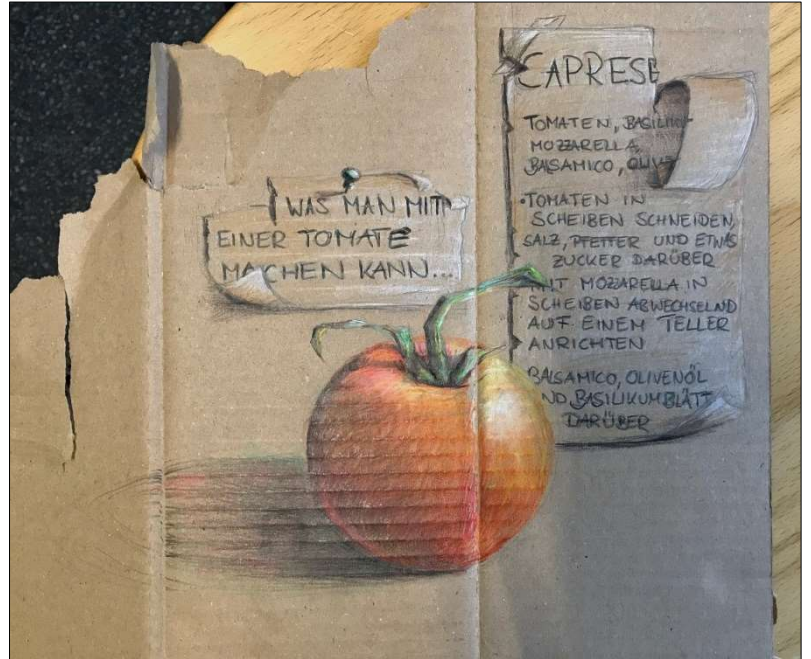 WAS MAN MIT
EINER TOMATE
MACHEN KANN...
CAPRESE
TOMATEN, BASILIKUM
MOZZARELLA,
BALSAMICO, OLIV
• TOMATEN IN
SCHEIBEN SCHNEIDEN,
SALZ, PFEFFER UND ETWAS
ZUCKER DARÜBER
MIT MOZZARELLA IN
SCHEIBEN ABWECHSELND
AUF EINEM TELLER
ANRICHTEN
BALSAMICO, OLIVENÖL
ND BASILIKUMBLÄTT
DARÜBER